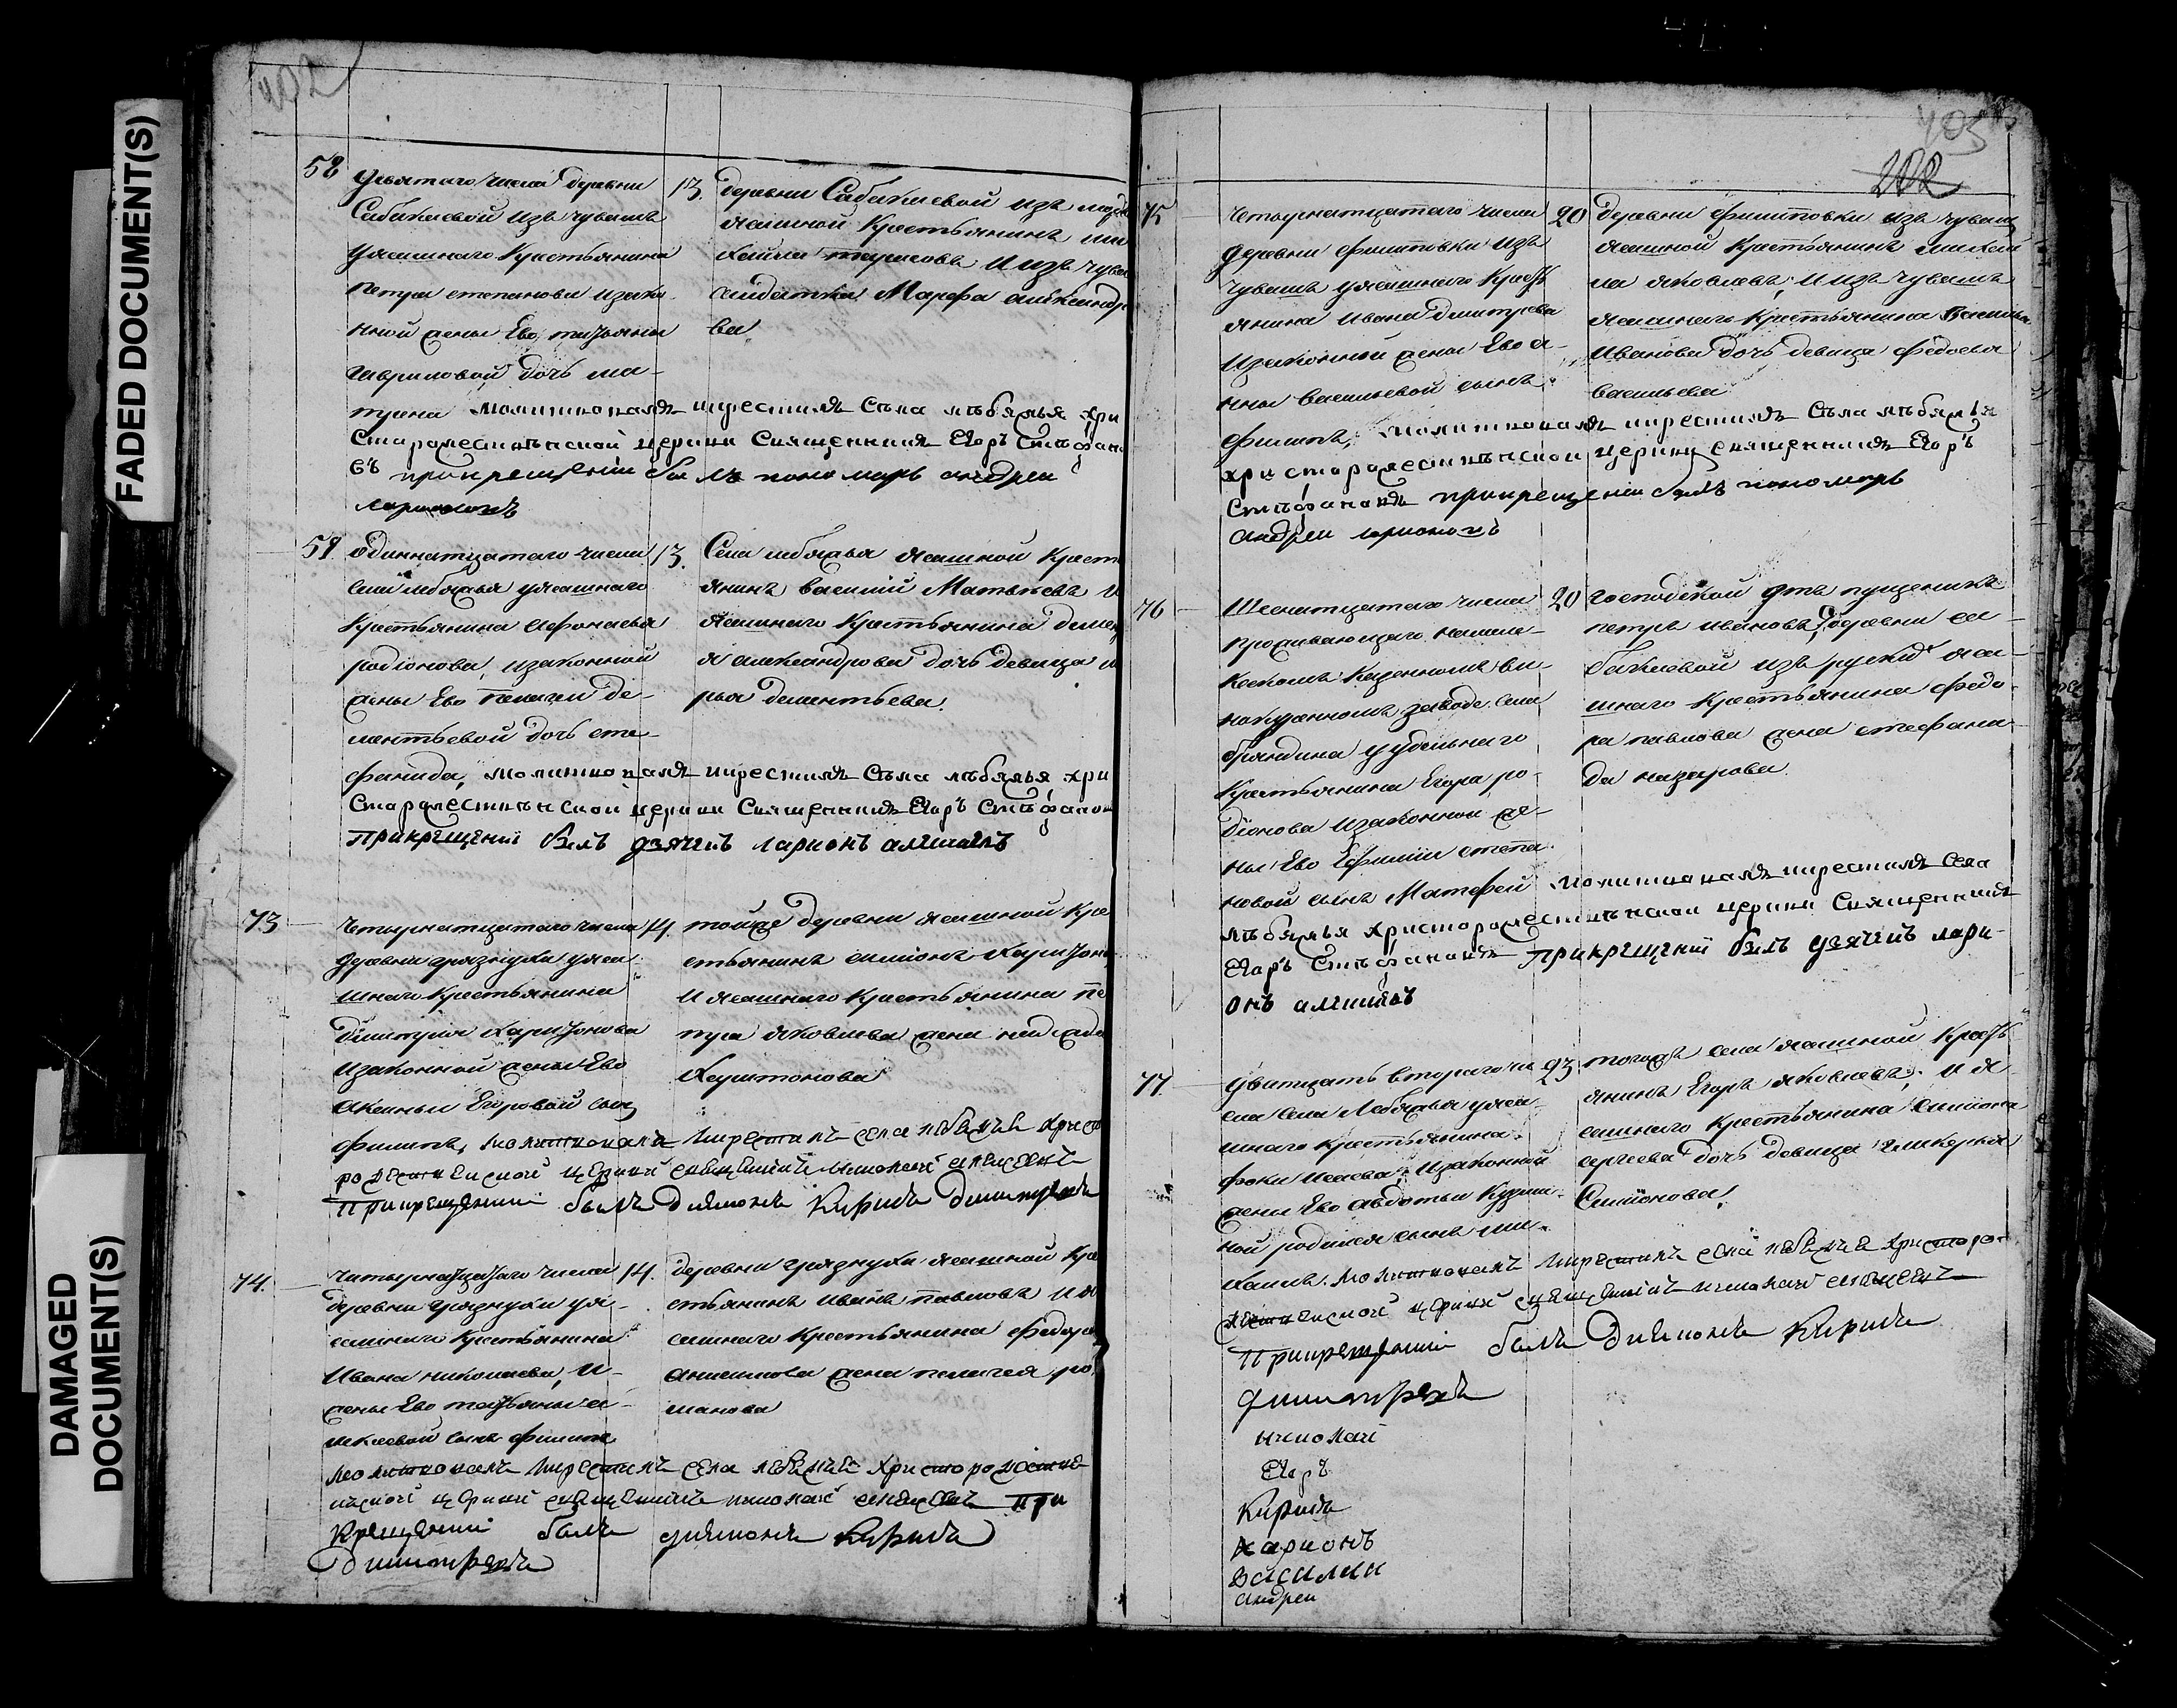 FADED DOCUMENT(S)
DAMAGED DOCUMENT(S)
402
58
девятаго числа деревни
Сабакаевой изъ чувашъ
уясашнаго Крестьянина
петра степанова изако
нной жены Ево татьяны
гавриловой дочь ма-
трина молитвовалъ икрестилъ Села лебяжья хри
сторождественской церкви Священникъ Егоръ Стефано
въ прикрещеніи былъ пономарь андреи
ларионовъ
13. деревни Сабакаевой изъ
ясашной Крестьянинъ ми
хайла тарасовъ и изъ чува
салдатка Марфа александро
ва
59
одиннатцатаго числа
села лебяжья уясашнаго
Крестьянина афонасья
родіонова, изаконной
жены Ево пелагеи де-
ментьевой дочь сте-
фанида, молитвовалъ икрестилъ Села лебяжья хри
сторождественской церкви Священникъ Егоръ Стефанов
прикрещеніи былъ дьячекъ ларионъ алексѣевъ
13. Села лебяжья ясашной Кресть
янинъ василий Матвѣевъ и
ясашнаго Крестьянина демен
я александрова дочь девица
рья дементьева.
73
четырнатцатаго числа
деревни грязнухи уяса
шнаго Крестьянина
димитрия харитонова
изаконной жены Ево
аксиньи Егоровой сынъ
филипъ, молитвовалъ икрестилъ села лебяжья христо
рождественской церкви священникъ николай
прикрещении былъ дияконъ Кирила димитриевъ
14. тойже деревни ясашной Кре
стьянинъ симионъ харитоно
и ясашнаго Крестьянина пе
тра яковлева жена надежда
харитонова
74.
четырнатцатаго числа
деревни грязнухи уя-
сашнаго Крестьянина
Ивана николаева, и
жены Ево татьяны а-
лексеевой сынъ филипъ
молитвовалъ икрестилъ села лебяжья христорождестве
нской церкви священникъ николай при
крещении былъ диякон Кирила
димитриевъ
14. деревни грязнухи ясашной Кре
стьянинъ иванъ павловъ и я
сашнаго Крестьянина федора
анисимова жена пелагея ро
манова
403
202
75
четырнатцатаго числа
деревни филиповки изъ
чувашъ уясашнаго Кресть
янина ивана дмитрева
изаконной жены Ево а-
нны васильевой сынъ
филипъ, молитвовалъ икрестилъ Села лебяжья
христорождественской церкви священникъ Егоръ
Стефановъ прикрещеніи былъ пономарь
андреи ларионовъ
20 деревни филиповки изъ чувашъ
ясашной Крестьянинъ михай
ла яковлевъ, и изъ чувашъ
ясашнаго Крестьянина
Иванова дочь девица федосья
васильева
76
Шеснатцатаго числа
проживающаго намеле-
кескомъ Казенномъ ви-
нокуренномъ заводе села
брандина уудельнаго
Крестьянина Егора ро-
діонова изаконной же-
ны Ево Ефимии степа-
новой сынъ Матфей молитвовалъ икрестилъ Села
лебяжья христорождественской церкви Священникъ
Егоръ Стефановъ прикрещеніи былъ дьячекъ лари-
онъ алексѣевъ
20 господской отпущеникъ
петръ ивановъ, деревни са-
бакаевой изъ руских яса-
шнаго Крестьянина федо
ра павлова жена стефани
да назарова
77.
дватцать втораго чи
сла села Лебяжья уяса
шнаго Крестьянина
фоки исаева, изаконной
жены Ево авдотьи Кузми-
ной родился сынъ ми-
хаилъ. молитвовалъ икрестилъ села лебяжья христоро
ждественской церкви священникъ николай
прикрещении былъ диякон Кирила
димитриевъ
23. тогожъ села ясашной Кресть
янинъ Егоръ яковлевъ, и я
сашнаго Крестьянина симиона
сергеева дочь девица гликерья
Симионова,
николай
Егоръ
Кирила
Ларионъ
Василии
андреи